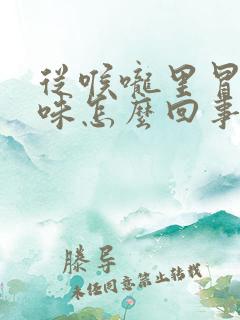 從喉嚨里冒
味怎麼回事
滕导
未任同意禁止转载